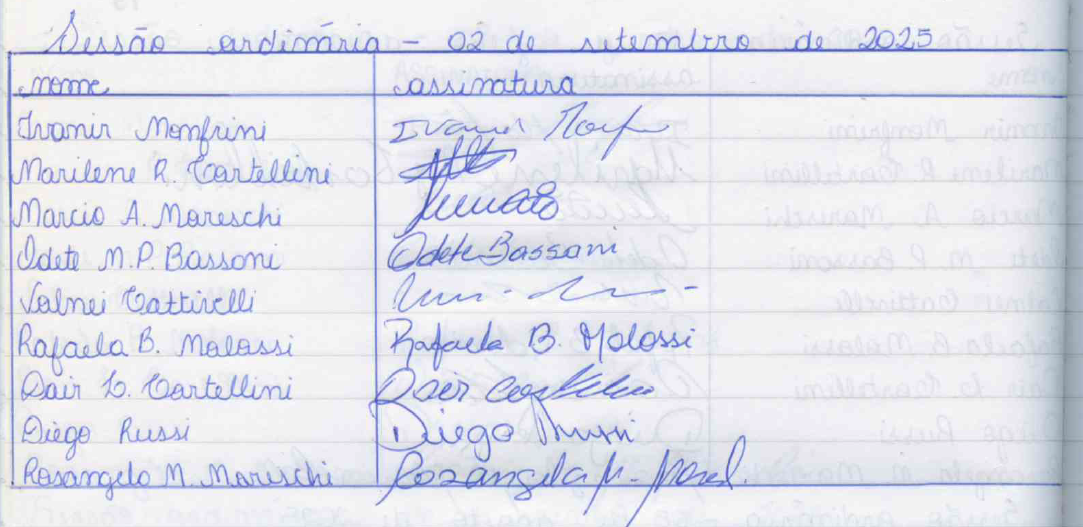 Sessão ordinária - 02 de setembro de 2025
nome assinatura
Ivanir Monfrini Ivanir
Marilene R. Castellini
Marcio A. Moreschi
Odete M.P. Bassoni Odete Bassani
Valnei Cattivelli
Rafaela B. Molossi Rafaela B. Molossi
Dair L. Castellini Dair
Diego Russi Diego Russi
Rosangela M. Moreschi Rosangela M.